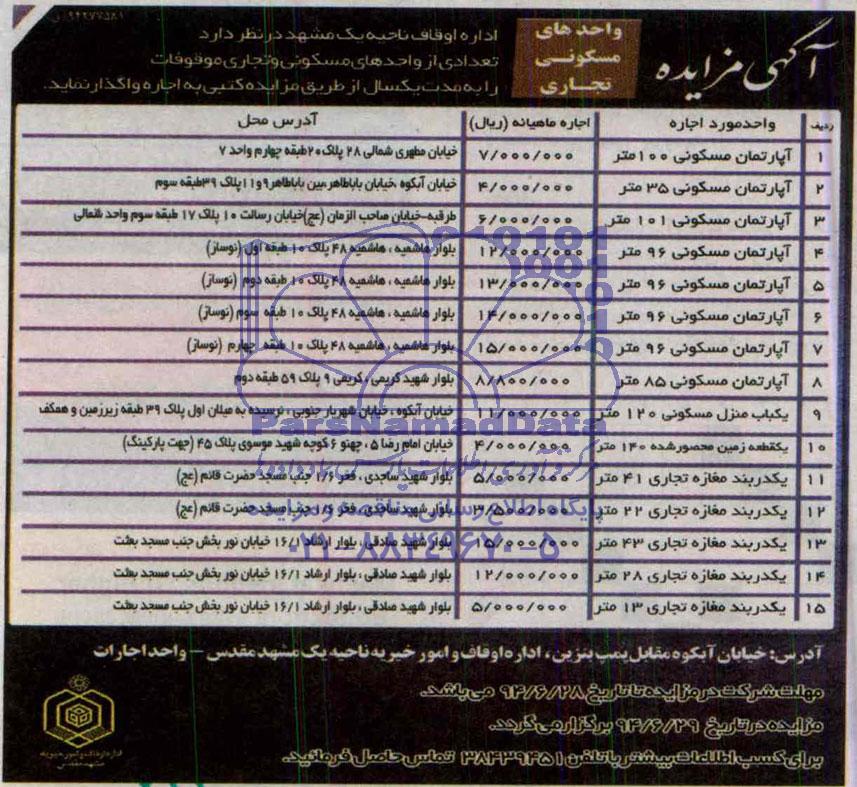 ۹۴۲۷۷۵۸۱
آگهی مزایده
واحد های
مسکونی
تجاری
اداره اوقاف ناحیه یک مشهد در نظر دارد
تعدادی از واحدهای مسکونی و تجاری موقوفات
را به مدت یکسال از طریق مزایده کتبی به اجاره واگذار نماید.
ردیف واحد مورد اجاره اجاره ماهیانه (ریال) آدرس محل
۱ آپارتمان مسکونی ۱۰۰ متر ۷/۰۰۰/۰۰۰ خیابان مطهری شمالی ۲۸ پلاک ۲۰ طبقه چهارم واحد ۷
۲ آپارتمان مسکونی ۳۵ متر ۴/۰۰۰/۰۰۰ خیابان آبکوه ،خیابان باباطاهر،بین باباطاهر ۹ و ۱۱ پلاک ۳۹ طبقه سوم
۳ آپارتمان مسکونی ۱۰۱ متر ۶/۰۰۰/۰۰۰ طرقبه-خیابان صاحب الزمان (عج) خیابان رسالت ۱۰ پلاک ۱۷ طبقه سوم واحد شمالی
۴ آپارتمان مسکونی ۹۶ متر ۱۲/۰۰۰/۰۰۰ بلوار هاشمیه ، هاشمیه ۴۸ پلاک ۱۰ طبقه اول (نوساز)
۵ آپارتمان مسکونی ۹۶ متر ۱۳/۰۰۰/۰۰۰ بلوار هاشمیه ، هاشمیه ۴۸ پلاک ۱۰ طبقه دوم (نوساز)
۶ آپارتمان مسکونی ۹۶ متر ۱۴/۰۰۰/۰۰۰ بلوار هاشمیه ، هاشمیه ۴۸ پلاک ۱۰ طبقه سوم (نوساز)
۷ آپارتمان مسکونی ۹۶ متر ۱۵/۰۰۰/۰۰۰ بلوار هاشمیه ، هاشمیه ۴۸ پلاک ۱۰ طبقه چهارم (نوساز)
۸ آپارتمان مسکونی ۸۵ متر ۸/۸۰۰/۰۰۰ بلوار شهید کریمی ، کریمی ۹ پلاک ۵۹ طبقه دوم
۹ یکباب منزل مسکونی ۱۲۰ متر ۱۱/۰۰۰/۰۰۰ خیابان آبکوه ، خیابان شهریار جنوبی ، نرسیده به میلان اول پلاک ۳۹ طبقه زیرزمین و همکف
۱۰ یکقطعه زمین محصور شده ۱۴۰ متر ۴/۰۰۰/۰۰۰ خیابان امام رضا ۵ ، چهنو ۶ کوچه شهید موسوی پلاک ۴۵ (جهت پارکینگ)
۱۱ یکدربند مغازه تجاری ۴۱ متر ۵/۰۰۰/۰۰۰ بلوار شهید ساجدی ، فخر ۱/۶ جنب مسجد حضرت قائم (عج)
۱۲ یکدربند مغازه تجاری ۲۲ متر ۳/۵۰۰/۰۰۰ بلوار شهید ساجدی ، فخر ۱/۶ جنب مسجد حضرت قائم (عج)
۱۳ یکدربند مغازه تجاری ۴۳ متر ۱۵/۰۰۰/۰۰۰ بلوار شهید صادقی ، بلوار ارشاد ۱۶/۱ خیابان نور بخش جنب مسجد بعثت
۱۴ یکدربند مغازه تجاری ۲۸ متر ۱۲/۰۰۰/۰۰۰ بلوار شهید صادقی ، بلوار ارشاد ۱۶/۱ خیابان نور بخش جنب مسجد بعثت
۱۵ یکدربند مغازه تجاری ۱۳ متر ۵/۰۰۰/۰۰۰ بلوار شهید صادقی ، بلوار ارشاد ۱۶/۱ خیابان نور بخش جنب مسجد بعثت
ParsNamadData
پایگاه اطلاع رسانی مناقصه و مزایده
۰۲۱-۸۸۳۴۹۶۷۰-۵
آدرس: خیابان آبکوه مقابل پمپ بنزین ، اداره اوقاف و امور خیریه ناحیه یک مشهد مقدس – واحد اجارات
مهلت شرکت در مزایده تا تاریخ ۹۴/۶/۲۸ می باشد.
مزایده در تاریخ ۹۴/۶/۲۹ برگزار می گردد.
برای کسب اطلاعات بیشتر با تلفن ۳۸۴۳۹۴۵۱ تماس حاصل فرمائید.
اداره اوقاف و امور خیریه
مشهد مقدس